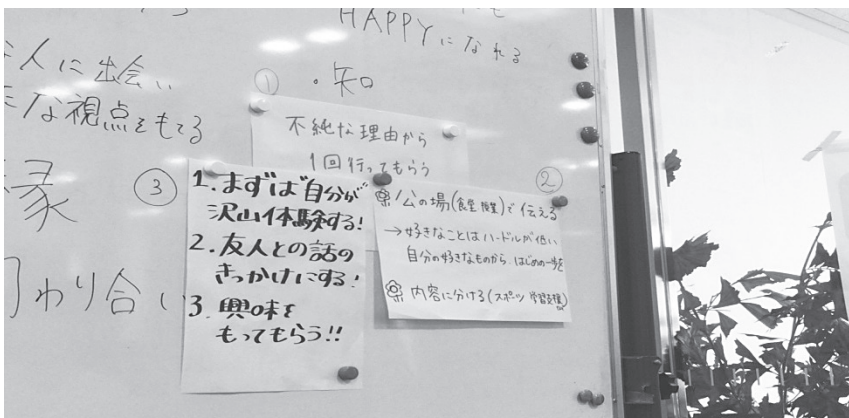 HAPPYになれる
人に出会い
な視点をもてる
縁
わり合い
①
・知
不純な理由から
1回行ってもらう
③
1.まずは自分が
沢山体験する!
2.友人との話の
きっかけにする!
3.興味を
もってもらう!!
②
公の場(食堂 授業)で伝える
→好きなことはハードルが低い
自分の好きなものから はじめの一歩を
内容に分ける(スポーツ 学習支援)